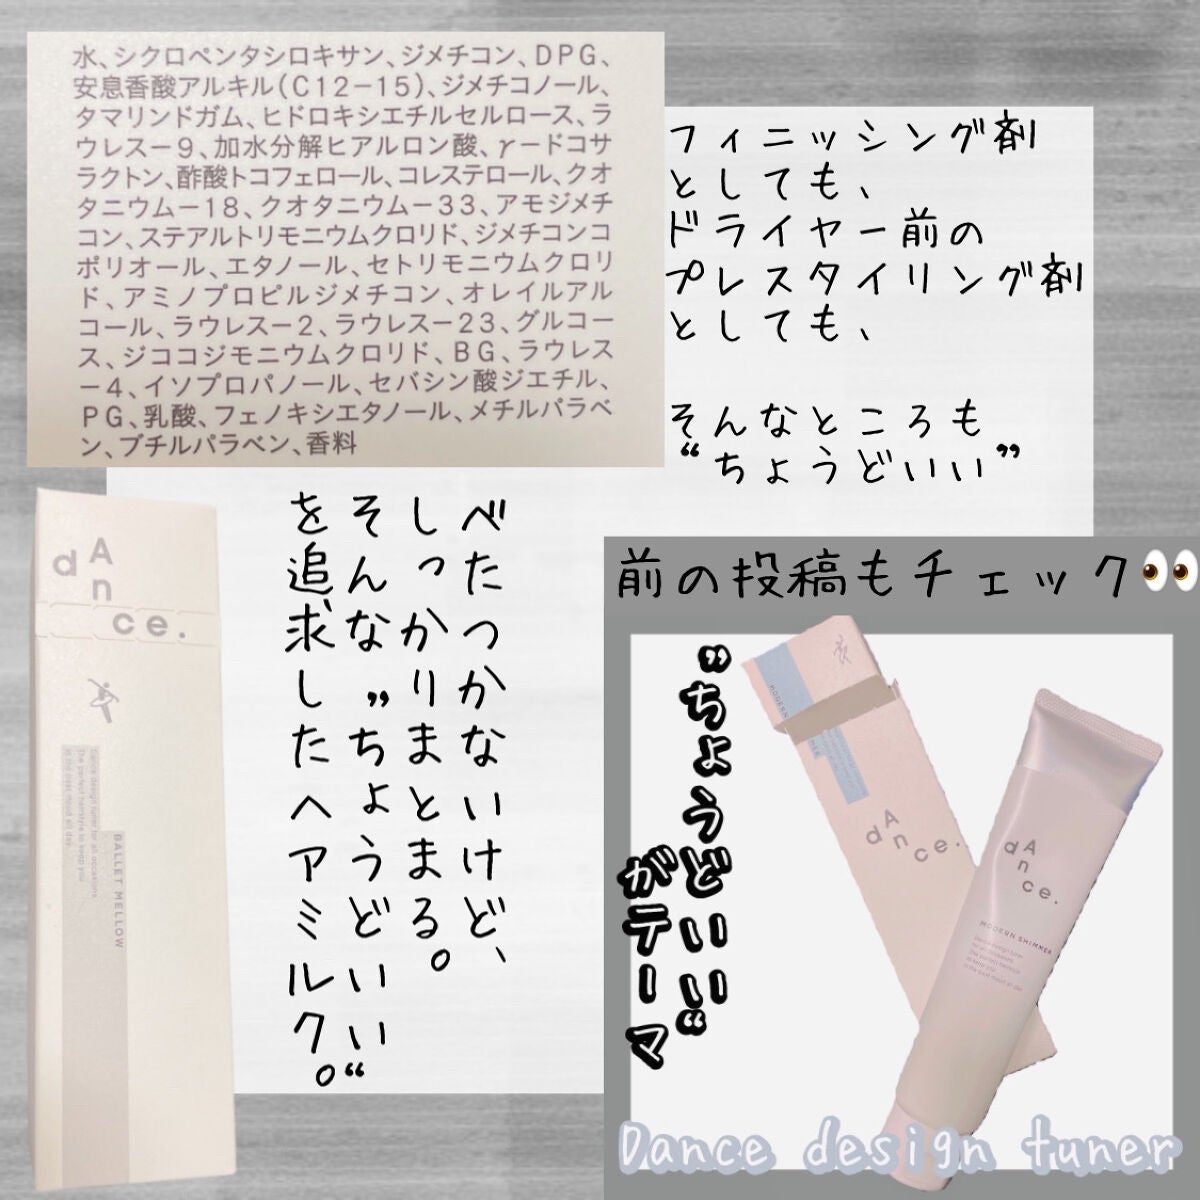 水、シクロペンタシロキサン、ジメチコン、DPG、
安息香酸アルキル(C12-15)、ジメチコノール、
タマリンドガム、ヒドロキシエチルセルロース、ラ
ウレス-9、加水分解ヒアルロン酸、γ-ドコサ
ラクトン、酢酸トコフェロール、コレステロール、クオ
タニウム-18、クオタニウム-33、アモジメチ
コン、ステアルトリモニウムクロリド、ジメチコンコ
ポリオール、エタノール、セトリモニウムクロリ
ド、アミノプロピルジメチコン、オレイルアル
コール、ラウレス-2、ラウレス-23、グルコー
ス、ジココジモニウムクロリド、BG、ラウレス
-4、イソプロパノール、セバシン酸ジエチル、
PG、乳酸、フェノキシエタノール、メチルパラベ
ン、ブチルパラベン、香料
フィニッシング剤
としても、
ドライヤー前の
プレスタイリング剤
としても、
そんなところも
“ちょうどいい”
べたつかないけど、
しっかりまとまる。
そんな”ちょうどいい“
を追求したヘアミルク。
dAnce.
BALLET MELLOW
Dance design tuner for all occasions
The perfect hairstyle to keep you
in the best mood all day
前の投稿もチェック👀
”ちょうどいい“
がテーマ
MODERN
dAnce.
dAnce.
MODERN SHIMMER
Dance design tuner
for all occasions
The perfect hairstyle
to keep you
in the best mood all day
Dance design tuner